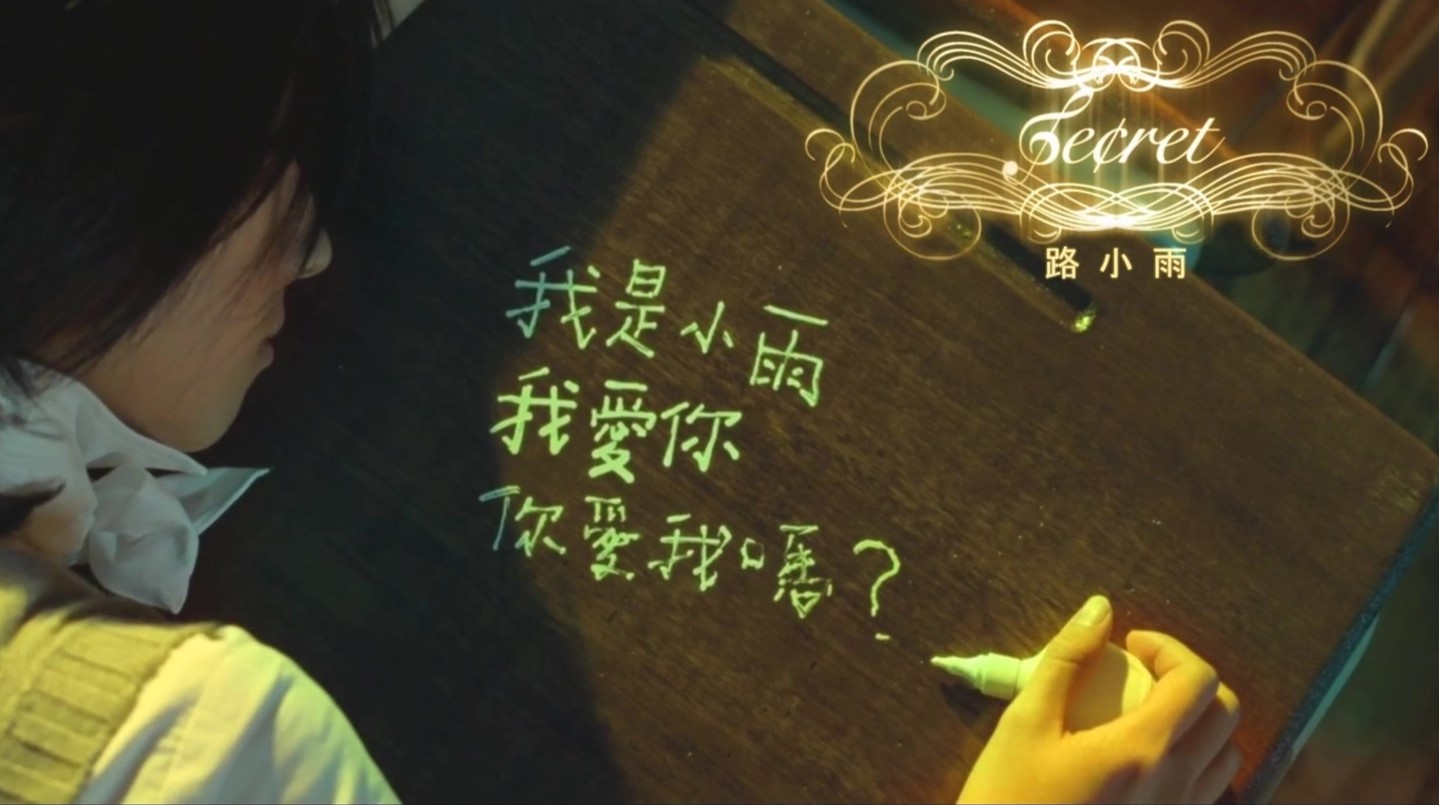 Secret
路小雨
我是小雨
我愛你
你愛我嗎?